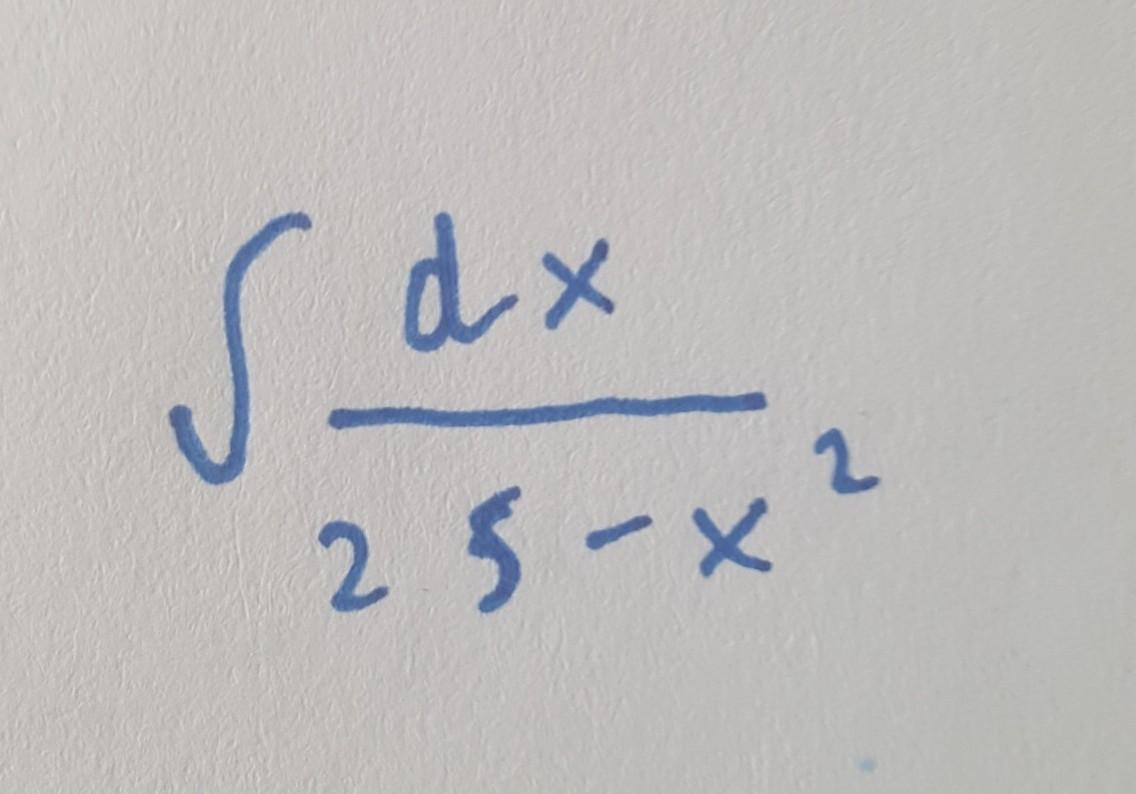 ∫ dx
25 - x²